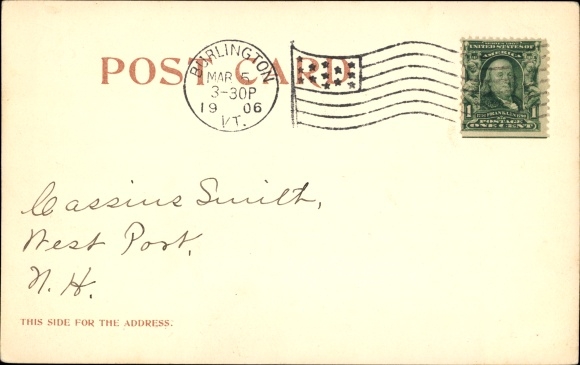 POST CARD
BURLINGTON
MAR 5
3-30P
1906
VT.
UNITED STATES OF
AMERICA
1 1
POSTAGE
ONE CENT
Cassius Smith,
West Port,
N. H.
THIS SIDE FOR THE ADDRESS.